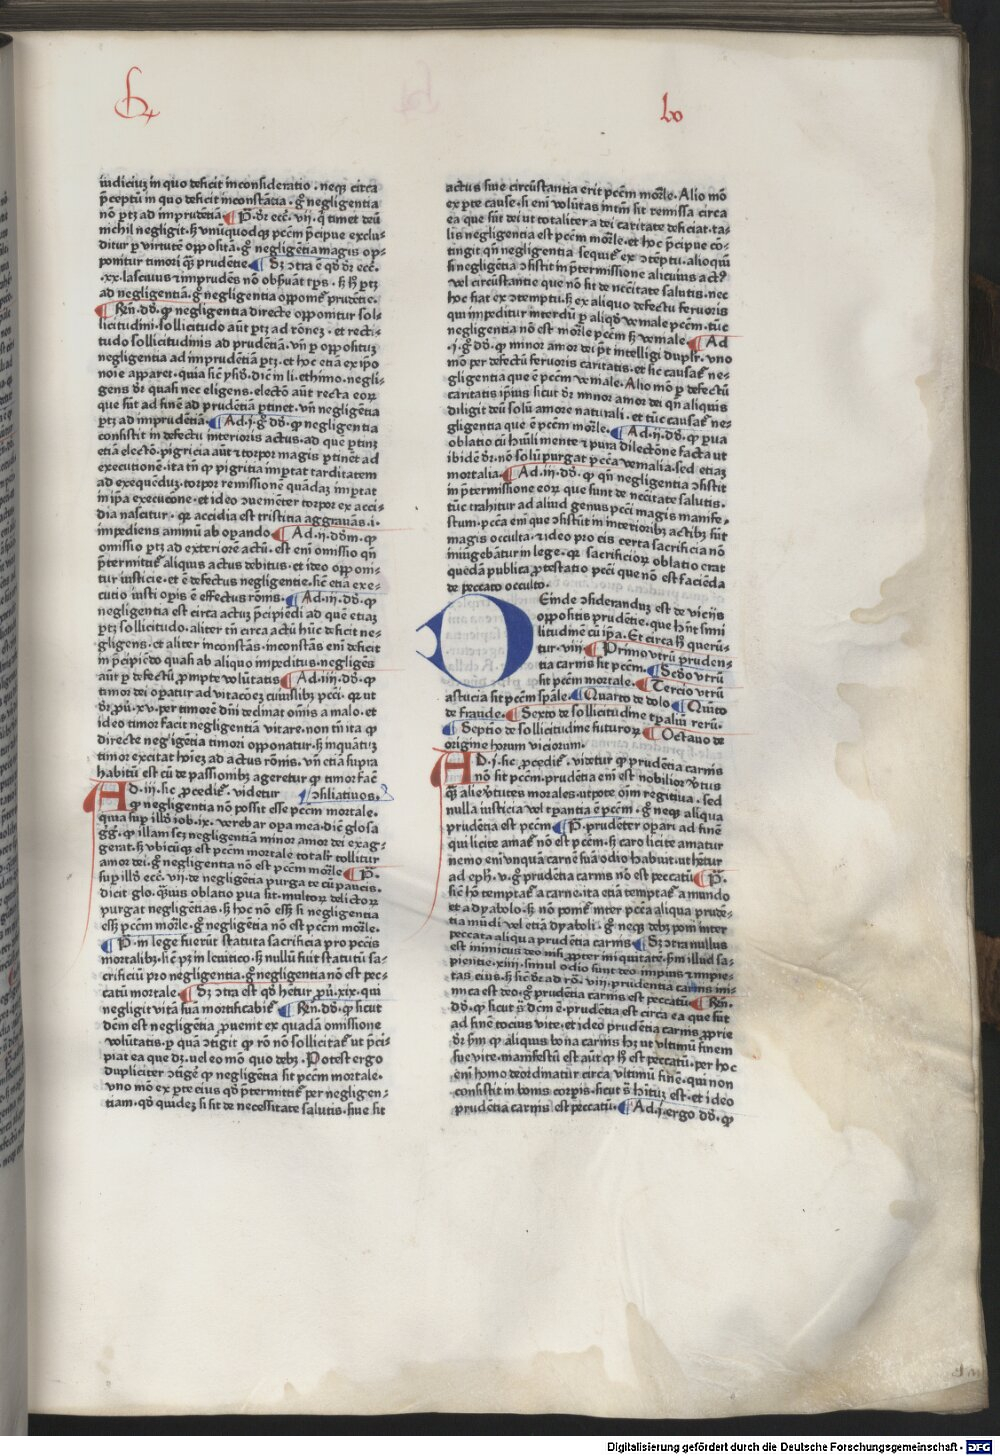 lv
iudiciuʒ in quo deficit inconsideratio . neqʒ circa
p̄ceptū in quo deficit inconstātia . gͦ negligentia
nō ptʒ ad imprudētiā ¶ P̄. dr̄ ecc̄. vij. q̄ timet deū
nichil negligit . sʒ vnūquodqʒ pccm̄ p̄cipue exclu-
ditur p̲ virtutē opposītā . gͦ negligētia magis op-
ponitur timori qͣʒ prudētie. ¶ Sʒ ↄtra ē qd̄ dr̄ ecc̄.
.xx. lasciuus ⁊ imprudēs nō obseruāt tp̄s . sʒ hͦ ptʒ
ad negligentiā . gͦ negligentia opponit᷑ prudētie.
¶ Rn̄. dd̄. ꝙ negligentia directe opponitur sol-
licitudini . sollicitudo aūt ptʒ ad rōneʒ . et recti-
tudo sollicitudinis ad prudētiā . vn̄ p̲ opposituʒ
negligentia ad imprudētiā ptʒ . et hoc etiā ex ip̄o
noīe apparet . quia sic̄ ysid. dic̄ in li. ethimo. negli-
gens dr̄ quasi nec eligens . electō aūt recta eoꝝ
que sūt ad finē ad prudētiā p̲tinet . vn̄ negligētia
ptʒ ad imprudētiā. ¶ Ad. j. gͦ dd̄. ꝙ negligentia
consistit in defectu interioris actus . ad que p̲tinʒ
etiā electō . pigricia aūt ⁊ torpor magis p̲tinēt ad
executionē . ita tn̄ ꝙ pigritia importat tarditatem
ad exequēduʒ . torpor remissionē quādaʒ importat
in ip̄a executōne . et ideo ↄueniēter torpor ex acci-
dia nascitur . qꝛ accidia est tristitia aggrauās . i.
impediens animū ab operando ¶ Ad. ij. dd̄m. ꝙ
omissio ptʒ ad exteriorē actū . est eni omissio qn̄
p̄termittit᷑ aliquis actus debitus . et ideo opponi-
tur iusticie . et ē defectus negligentie . sic̄ etiā exe-
cutio iusti op̲is ē effectus rōnis. ¶ Ad. iij. dd̄. ꝙ
negligentia est circa actuʒ p̄cipiēdi ad quē etiaʒ
ptʒ sollicitudo . aliter tn̄ circa actū hūc deficit ne-
gligens . et aliter inconstās . inconstās eni deficit
in p̄cipiēdo quasi ab aliquo impeditus . negligēs
aūt p̲ defectū p̲mpte volūtatis ¶ Ad. iiij. dd̄. ꝙ
timor dei op̲atur ad vitacōeʒ cuiuslibʒ pcc̄i . qꝛ ut
dr̄ p̲ū. xv. per timorē dn̄i declinat om̄is a malo . et
ideo timor facit negligentiā vitare . non tn̄ ita ꝙ
directe negligētia timori opponatur . sʒ inquātuʒ
timor excitat hoīeʒ ad actus rōnis . vn̄ etiā supra
habitū est cū de passionibʒ ageretur ꝙ timor fac̄
AD. iij. sic p̲cedit᷑ . videtur ¶ ↄsiliatiuos.
ꝙ negligentia nō possit esse pccm̄ mortale .
quia sup̲ illd̄ iob. ix. verebar opa mea . dic̄ glosa
gͬḡ. ꝙ illam scʒ negligentiā minor amor dei exag-
gerat . sʒ vbicūqʒ est pccm̄ mortale totalr̄ tollitur
amor dei . gͦ negligentia nō est pccm̄ mor̄le ¶ P̄.
sup̲ illd̄ ecc̄. vij. de negligentia purga te cū paucis.
dicit glo. qͣuis oblatio p̲ua sit . multoꝝ delictoꝝ
purgat negligētias . sʒ hͦc nō esset si negligentia
esset pccm̄ mor̄le . gͦ negligētia nō est pccm̄ mor̄le.
¶ P̄. in lege fuerūt statuta sacrificia pro pcc̄is
mortalibʒ . sic̄ pʒ in leuitico . sʒ nullū fuit statutū sa-
crificiū pro negligentia . gͦ negligentia nō est pec-
catū mortale ¶ Sʒ ↄtra est qd̄ hetur p̲ū. xix. qui
negligit vitā suā mortificabit᷑ ¶ Rn̄. dd̄. ꝙ sicut
dcm̄ est negligētia p̲uenit ex quadā omissione
volūtatis . p̲ quā ↄtigit ꝙ rō nō sollicitat᷑ ut p̄ci-
piat ea que dʒ . uel eo mō quo debʒ . Potest ergo
dupliciter ↄtige᷑ ꝙ negligētia sit pccm̄ mortale .
vno mō ex p̲te eius qd̄ p̄termittit᷑ per negligen-
tiam . qd̄ quideʒ si sit de necessitate salutis . siue sit
actus siue circūstantia erit pccm̄ mor̄le. Alio mō
ex p̲te cause . si eni volūtas intm̄ sit remissa circa
ea que sūt dei ut totaliter a dei caritate deficiat . ta-
lis negligentia est pccm̄ mor̄le . et hoc p̄cipue cō-
tingit qn̄ negligentia sequit᷑ ex ↄteptu . alioqui
si negligētia ↄsistit in p̄termissione alicuius actꝰ
vel circūstantie que nō sit de nec̄itate salutis . nec
hoc fiat ex ↄteptu . sʒ ex aliquo defectu feruoris
qui impeditur interdū p̲ aliqd̄ veniale pccm̄ . tūc
negligentia nō est mor̄le pccm̄ sʒ veniale ¶ Ad
.j. gͦ dd̄. ꝙ minor amor dei pōt intelligi duplr̄ . vno
mō per defectū feruoris caritatis . et sic causat᷑ ne-
gligentia que ē pccm̄ veniale. Alio mō p̲ defectū
caritatis ip̄ius sicut dr̄ minor amor dei qn̄ aliquis
diligit deū solū amore naturali . et tūc causat᷑ ne-
gligentia que ē pccm̄ mor̄le. ¶ Ad. ij. dd̄. ꝙ p̲ua
oblatio cū hūili mente ⁊ pura dilectōne facta ut
ibidē dr̄ . nō solū purgat pcc̄a venialia . sed etiaʒ
mortalia. ¶ Ad. iij. dd̄. ꝙ qn̄ negligentia ↄsistit
in p̄termissione eoꝝ que sunt de nec̄itate salutis .
tūc trahitur ad aliud genus pcc̄i magis manife-
stum . pcc̄a eni que ↄsistūt in interioribʒ actibʒ sūt
magis occulta . ⁊ ideo pro eis certa sacrificia nō
iniūgebātur in lege . qꝛ sacrificioꝝ oblatio erat
quedā publica protestatio pcc̄i que nō est faciēda
de peccato occulto.
DEinde ↄsideranduʒ est de viciis
oppositis prudētie . que hn̄t simi
litudinē cū ip̄a . Et circa hͦ querū-
tur . viij. ¶ Primo vtrū pruden-
tia carnis sit pccm̄. ¶ Scd̄o vtrū
sit pccm̄ mortale. ¶ Tercio vtrū
astucia sit pccm̄ sp̄ale. ¶ Quarto de dolo ¶ Quīto
de fraude. ¶ Sexto de sollicitudine tp̲aliū rerū.
¶ Septīo de sollicitudine futuroꝝ ¶ Octauo de
origine horum viciorum.
AD. j. sic p̲cedit᷑ . videtur ꝙ prudētia carnis
nō sit pccm̄ . prudētia eni est nobilior ꝟtus
qͣʒ alie ꝟtutes morales . utpote oīm regitiua . sed
nulla iusticia vel tp̲antia ē pccm̄ . gͦ neqʒ aliqua
prudētia est pccm̄ ¶ P̄. prudēter op̲ari ad finē
qui licite amat᷑ nō est pccm̄ . sʒ caro licite amatur
nemo eni vnquā carnē suā odio habuit . ut hētur
ad eph. v. gͦ prudētia carnis nō est peccatū ¶ P̄.
sic̄ hō temptat᷑ a carne . ita etiā temptat᷑ a mundo
et a dyabolo . sʒ nō ponit᷑ inter pcc̄a aliqua prudē-
tia mūdi vel etiā dyaboli . gͦ neqʒ debʒ poni inter
peccata aliqua prudētia carnis ¶ Sʒ ↄtra nullus
est inimicus deo nisi p̲pter iniquitatē . sm̄ illud sa-
pientie. xiiij. simul odio sunt deo impius ⁊ impie-
tas eius . sʒ sic̄ dr̄ ad ro. viij. prudentia carnis ini-
mica est deo . gͦ prudētia carnis est peccatū ¶ Rn̄.
dd̄. ꝙ sicut s̄ dcm̄ ē . prudētia est circa ea que sūt
ad finē tocius vite . et ideo prudētia carnis p̲prie
dr̄ sm̄ ꝙ aliquis bona carnis hʒ ut vltimū finem
sue vite . manifestū est aūt ꝙ hͦ est peccatū . per hoc
eni homo deordinatur circa vltimū finē . qui non
consistit in bonis corp̲is . sicut s̄ hītuʒ est . et ideo
prudētia carnis est peccatū. ¶ Ad. j. ergo dd̄. ꝙ
Digitalisierung gefördert durch die Deutsche Forschungsgemeinschaft - DFG